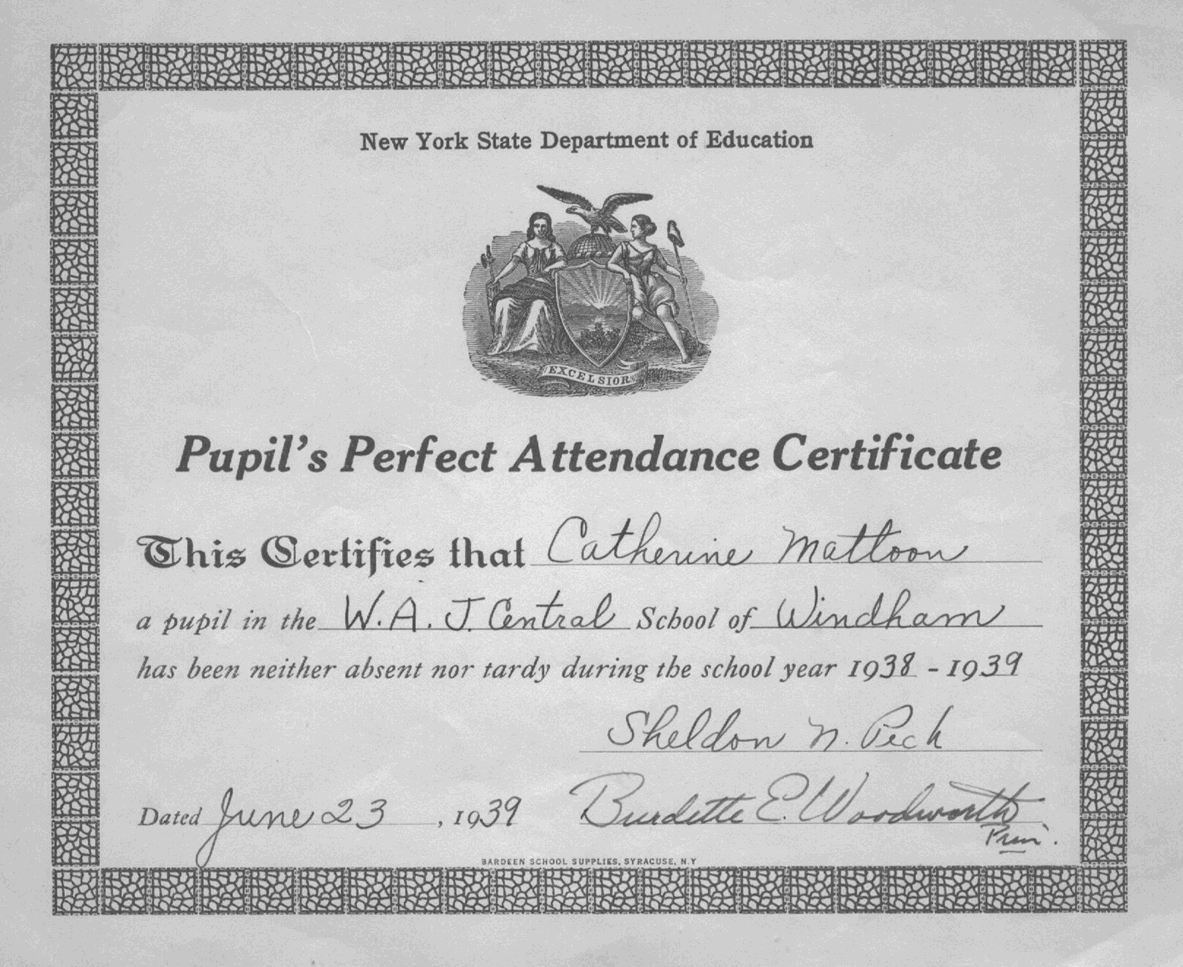 New York State Department of Education
EXCELSIOR
Pupil's Perfect Attendance Certificate
This Certifies that Catherine Mattoon
a pupil in the W.A.J. Central School of Windham
has been neither absent nor tardy during the school year 1938 - 1939
Sheldon N. Peck
Dated June 23, 1939 Burdette E. Woodworth
Prin.
BARDEEN SCHOOL SUPPLIES, SYRACUSE, N.Y